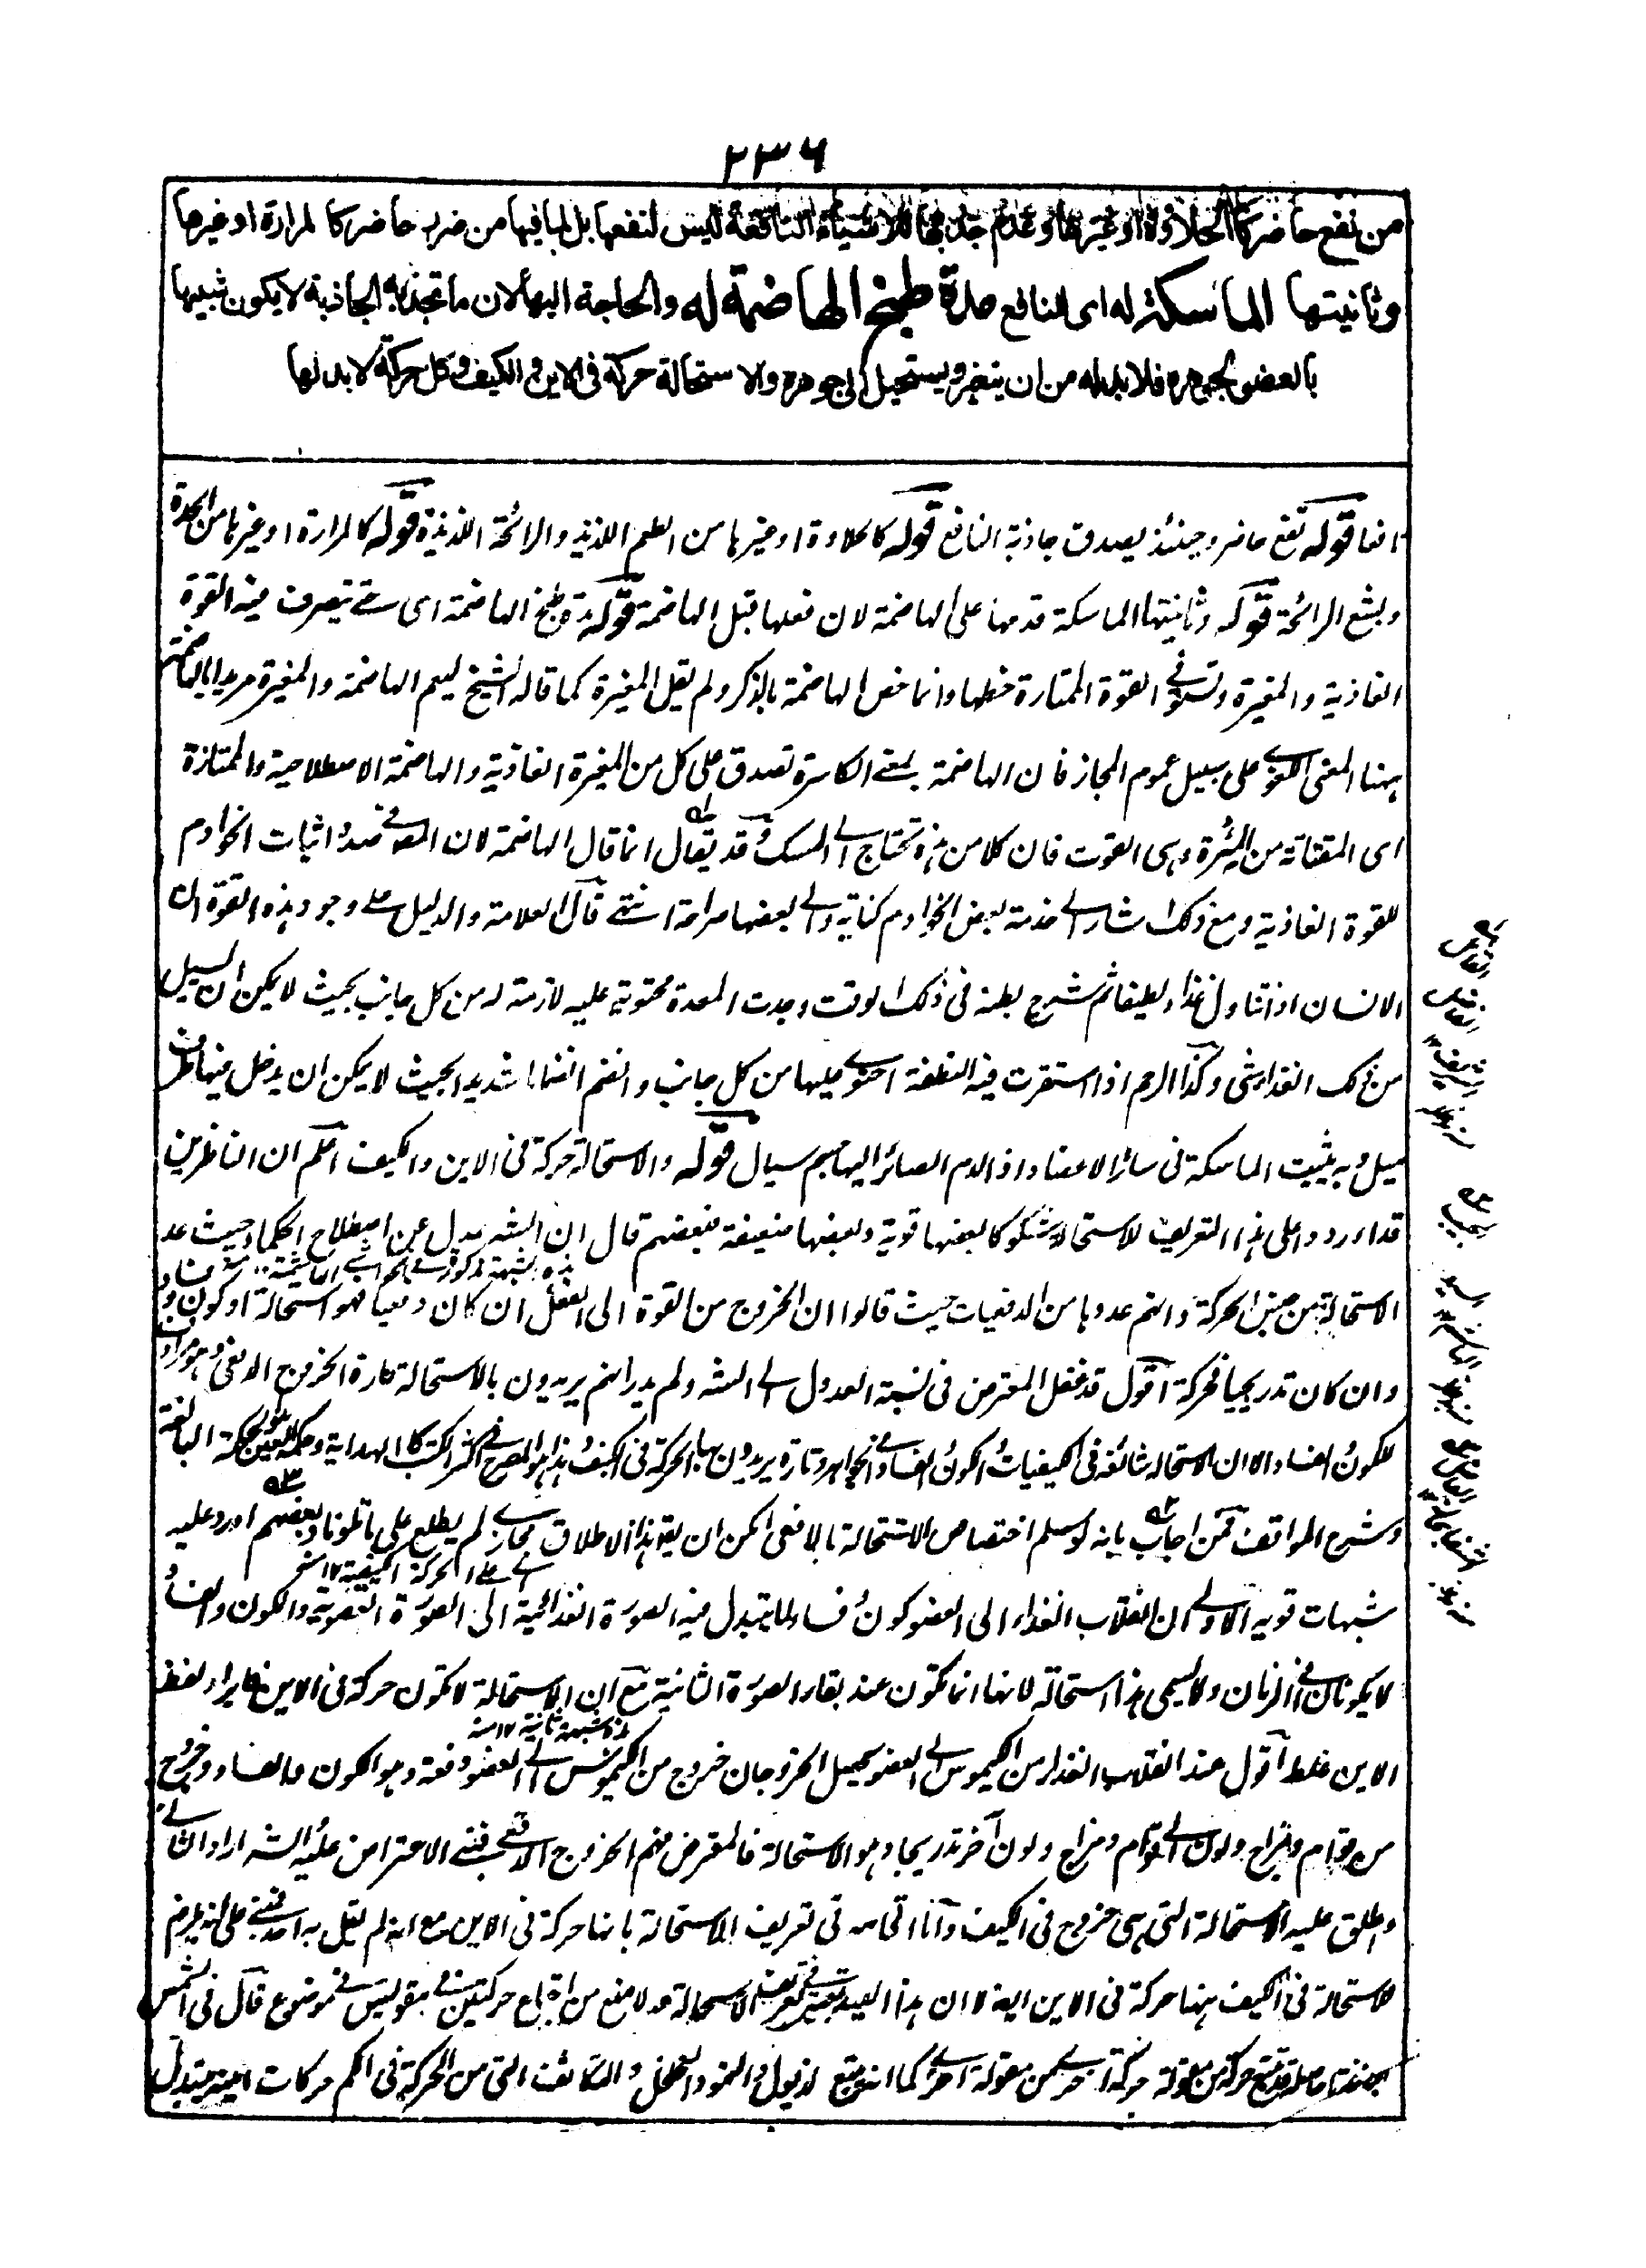 ٢٣٦
من نفع حاضر كالحلاوة او غيرها وعدم جذبها للاشياء النافعة ليس لنفعها بل لما فيها من ضرر حاضر كالمرارة او غيرها
وثانيتها الماسكة له اى للنافع مدة طبخ الهاضمة له والحاجة اليها لان ما تجذبه الجاذبة لا يكون شبيها
بالعضو بجوهره فلا بد له من ان يتغير ويستحيل الى جوهره والاستحالة حركة فى الاين و الكيف وكل حركة لا بد لها
قوله نفع حاضر وحينئذ يصدق جاذبة النافع قوله كالحلاوة او غيرها من الطعم اللذيذ والرائحة اللذيذة قوله كالمرارة او غيرها من الحدة
وبشع الرائحة قوله وثانيتها الماسكة قدمها على الهاضمة لان فعلها قبل الهاضمة قوله مدة طبخ الهاضمة اى حتى تتصرف فيه القوة
الغاذية والمغيرة وتستوفى القوة الممتازة حظها وانما خص الهاضمة بالذكر ولم يقل المغيرة كما قاله الشيخ ليعم الهاضمة والمغيرة مريدا بالهاضمة
ههنا المعنى اللغوى على سبيل عموم المجاز فان الهاضمة بمعنى الكاسرة تصدق على كل من المغيرة الغاذية والهاضمة الاصطلاحية والممتازة
اى فان كلا من هذه تحتاج الى المسك قد يقال انما قال الهاضمة لان المصنف بصدد اثبات الخوادم
للقوة الغاذية ومع ذلك اشار الى خدمة بعض الخوادم كناية والى بعضها صراحة انتهى قال العلامة والدليل على وجود هذه القوة ان
الانسان اذا تناول غذاء لطيفا ثم شرح بطنه فى ذلك الوقت وجدت المعدة محتوية عليه لازمة له من كل جانب بحيث لا يمكن ان يسيل
من ذلك الغذاء شى وكذا الرحم اذا استقرت فيه النطفة احتوى عليها من كل جانب وانضم انضماما شديدا بحيث لا يمكن ان يدخل فيها طرف
ميل وبه يثبت الماسكة فى سائر الاعضاء اذ الدم الصائر اليها جسم سيال قوله والاستحالة حركة فى الاين والكيف اعلم ان الناظرين
قد اوردوا على هذا التعريف للاستحالة شكوكا بعضها قوية وبعضها ضعيفة فبعضهم قال ان الشه عدل عن اصطلاح الحكماء حيث عد
الاستحالة من جنس الحركة وانهم عدوها من الدفعيات حيث قالوا ان الخروج من القوة الى الفعل ان كان دفعيا فهو استحالة او كون وفساد
وان كان تدريجيا فحركة اقول قد غفل المعترض فى نسبة العدول الى الشه ولم يدر انهم يريدون بالاستحالة تارة الخروج الدفعى وهو مرادف
للكون والفساد الا ان الاستحالة شائعة فى الكيفيات والكون والفساد فى الجواهر وتارة يريدون بها الحركة فى الكيف وهذا هو المصرح فى اكثر الكتب كالهداية وحكمة العين والحكمة البالغة
وشرح المواقف فمن اجاب بانه لو سلم اختصاص الاستحالة بالدفعى امكن ان يقال هذا الاطلاق مجازى لم يطلع على ما تلونا وبعضهم اورد عليه
شبهات قوية الاولى ان انقلاب الغذاء الى العضو كون فساد لما يتبدل فيه الصورة الغذائية الى الصورة العضوية والكون والفساد
لا يكونان فى الزمان ولا يسمى هذا استحالة لانها انما تكون عند بقاء الصورة الثانية مع ان الاستحالة لا تكون حركة فى الاين فايراد لفظ
الاين غلط اقول عند انقلاب الغذاء من الكيموس الى العضو يحصل الخروجان خروج من الكيموس الى العضو دفعة وهو الكون والفساد وخروج
من قوام ومزاج ولون الى قوام ومزاج ولون آخر تدريجا وهو الاستحالة فالمعترض فهم الخروج الدفعى فبنى الاعتراض عليه الشه اراد الثانى
واطلق عليه الاستحالة التى هى خروج فى الكيف وانما اقحامه فى تعريف الاستحالة بانها حركة فى الاين مع انه لم يقل به احد فبنى على انه يلزم
للاستحالة فى الكيف ههنا حركة فى الاين ايضا لا ان هذا القيد معتبر فى تعريف الاستحالة ولا منع من اجتماع حركتين من مقولتين فى موضوع قال فى الشمس
حركة من مقولة حركة اخرى من مقولة اخرى كما انه يتبع الذبول والنمو والتخلخل والتكاثف التى من الحركة فى الكم حركات اينية